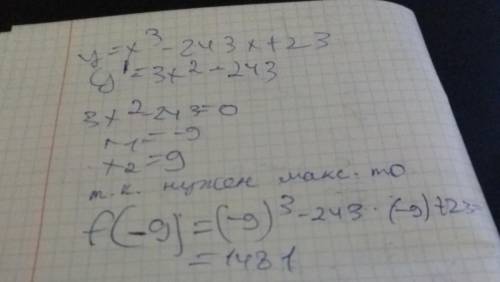 y = x³ - 243x + 23
y' = 3x² - 243
3x² - 243 = 0
x1 = -9
x2 = 9
т.к. нужен макс. то
f(-9) = (-9)³ - 243 · (-9) + 23 =
= 1481